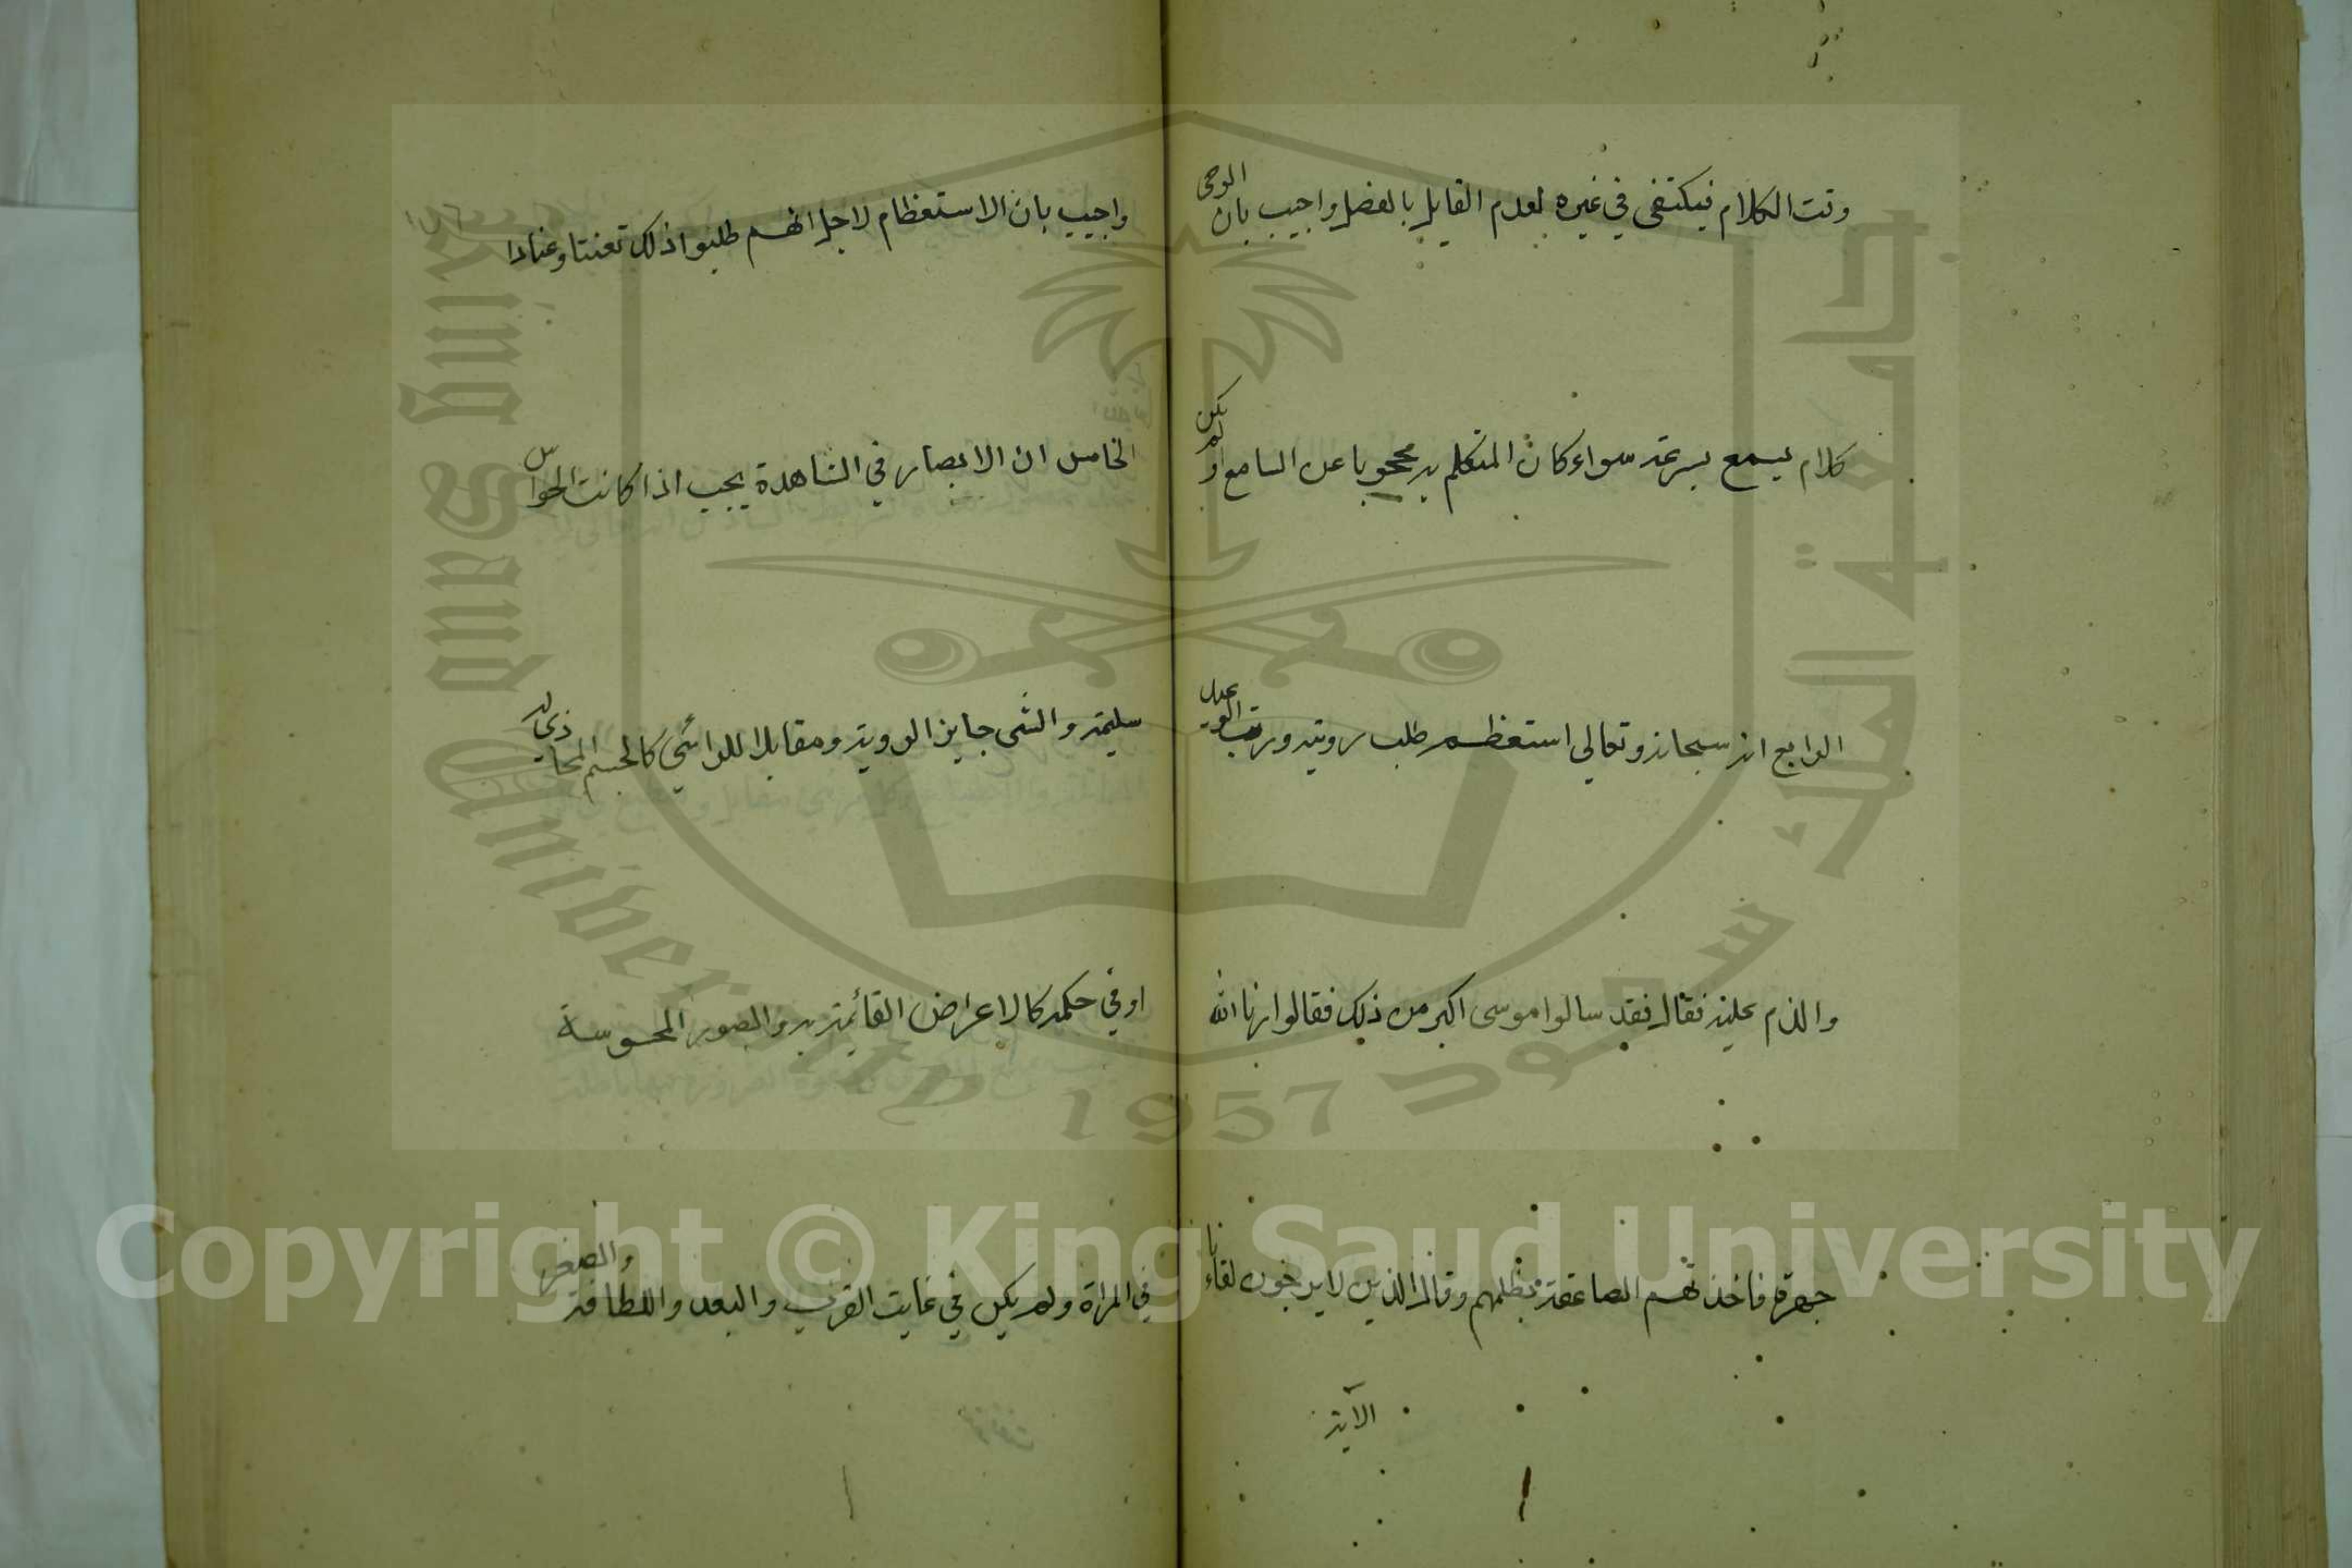 وقت الكلام فيكتفى في غيره لعدم القايل بالفصل واجيب بان الوحى
كلام يسمع بسرعة سواء كان المتكلم به محجوبا عن السامع او لم يكن
الرابع انه سبحانه وتعالي استعظم طلب رويته ورتب الوعيد
والذم عليه فقال فقد سالوا موسى اكبر من ذلك فقالوا ارنا الله
جهرة فاخذتهم الصاعقة بظلمهم وقال الذين لا يرجون لقاءنا
الآية
١٥٦
واجيب بان الاستعظام لاجل انهم طلبوا ذلك تعنتا وعنادا
الخامس ان الابصار في الشاهدة يجب اذا كانت الحواس
سليمة والشى جايز الروية ومقابلا للرائي كالجسم المحاذي له
او في حكمه كالاعراض القائمة به والصور المحسوسة
في المراة ولم يكن في غايت القرب والبعد واللطافة والصغر
King Saud University
جامعة الملك سعود
1957
Copyright © King Saud University